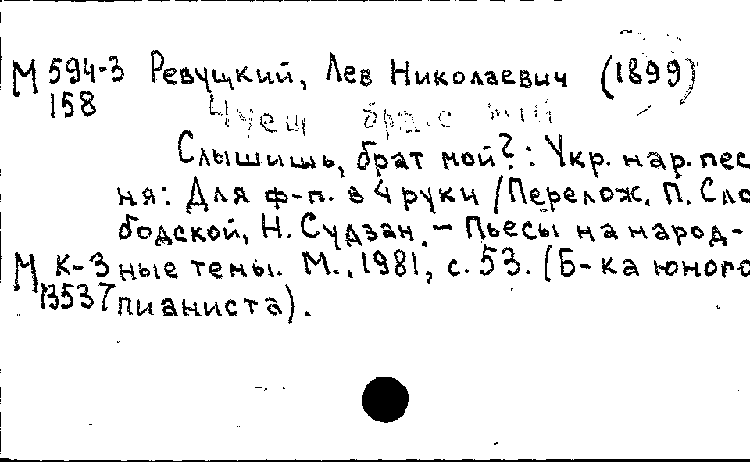 М 594-3 Ревуцкий, Лев Николаевич (1899)
158 Чуеш брате мій
Слышишь, брат мой? : Укр. нар. пес
ня: Для ф-п. в 4 руки / Перелож. П. Сло
бодской, Н. Судзан. - Пьесы на народ-
М К-3 ные темы. М., 1981, с. 53. (Б-ка юного
13537 пианиста).